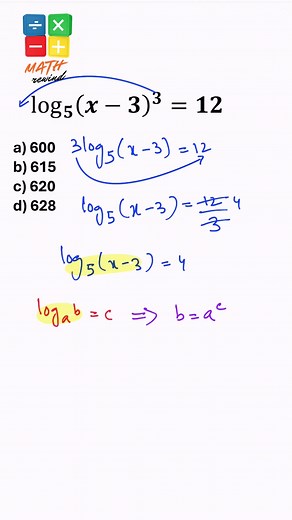 ÷ ×
− +
MATH
rewind
log₅(x − 3)³ = 12
a) 600
b) 615
c) 620
d) 628
3log₅(x−3) = 12
log₅(x−3) = 12/3 4
log₅(x−3) = 4
logₐb = c ⇒ b = aᶜ